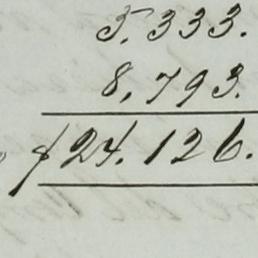 5.333.
8,793.
$24.126.